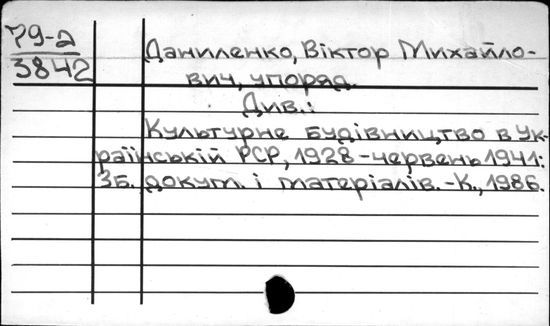 79-2
3842
Даниленко, Віктор Михайло-
вич, упоряд.
Див.:
Культурне будівництво в Ук-
раїнській РСР, 1928-червень 1941:
Зб. докум. і матеріалів.-К., 1986.